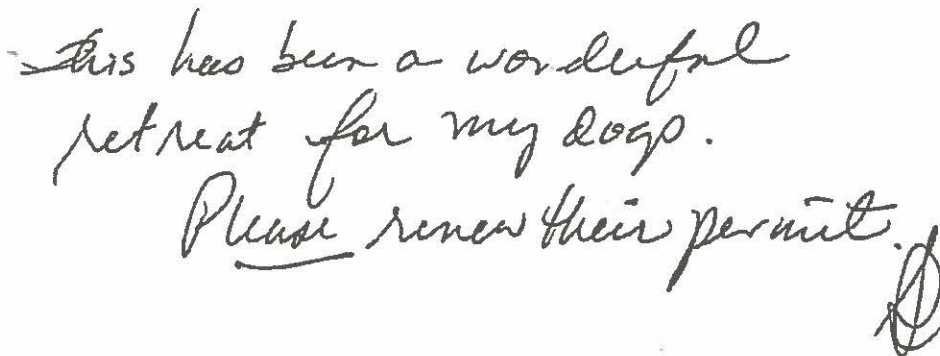 This has been a wonderful
retreat for my dogs.
Please renew their permit.